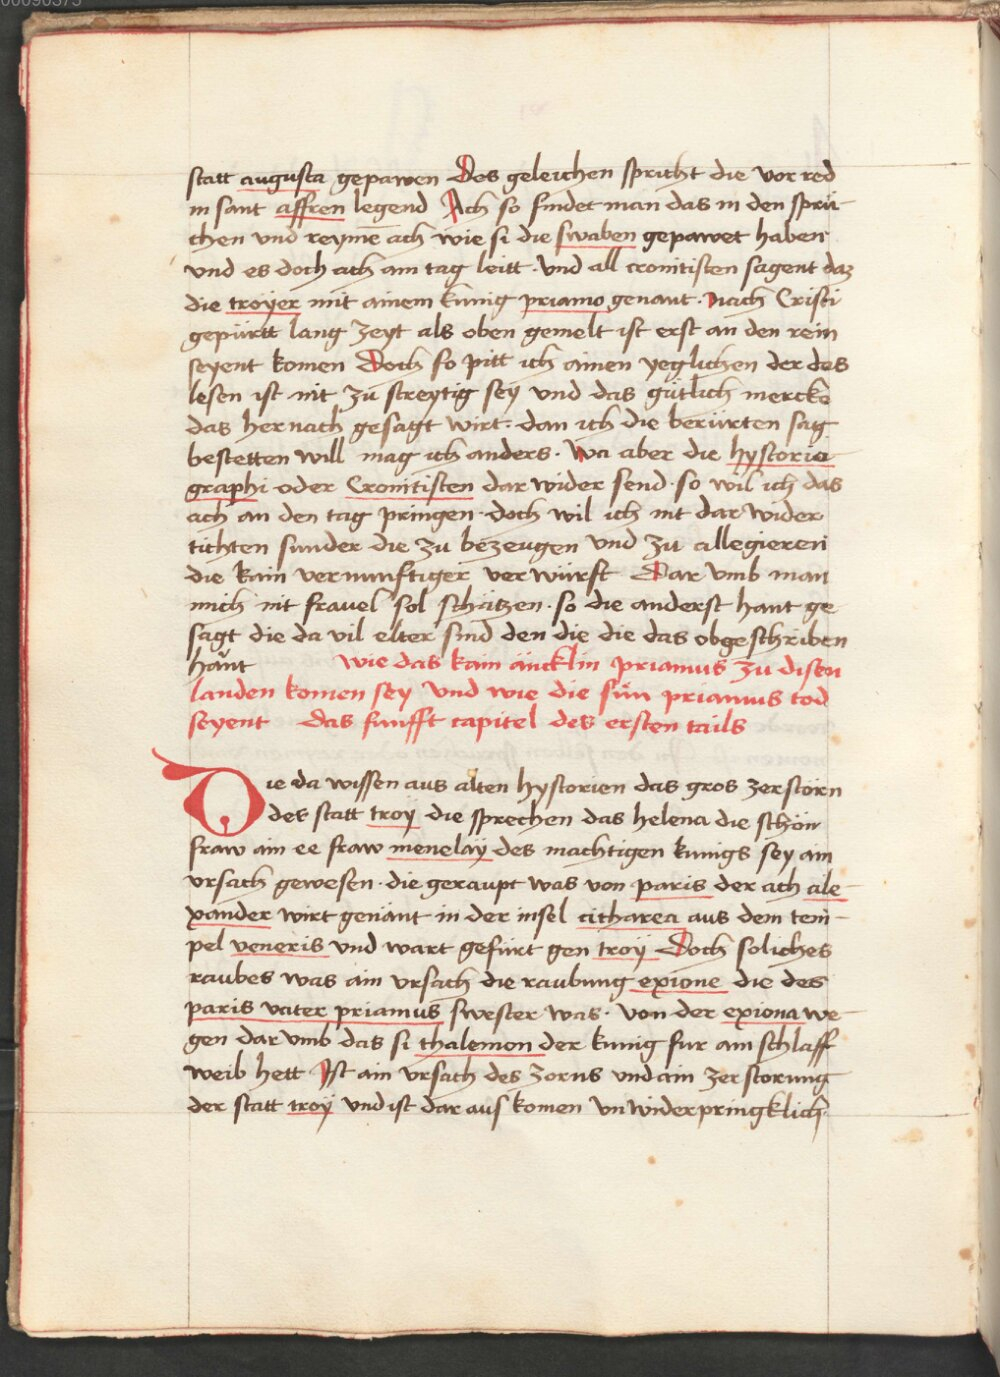 statt augusta gepawen Des geleichen spricht die vor red
in sant affren legend Ach so findet man das in den sprü-
chen und reymē ach wie si die swaben gepawet haben
und es doch ach am tag leitt · Und all cronitisten sagent daz
die troyer mit ainem kunig priamo genant · Nach Cristi
gepürtt lang zeyt als oben gemelt ist erst an den rein
seyent komen Doch so pitt ich ainen yeglichen der des
lesen ist nit zu streytig sey und das gütlich mercke
das hernach gesagt wirt · dan ich die berürten sag
bestetten will mag ich anders · Wa aber die hystoria
graphi oder Cronitisten dar wider send · so wil ich das
ach an den tag pringen · doch wil ich nit dar wider
tichten sunder die zu bezeugen und zu allegieren
die kain vernunftiger verwürft Dar umb man
mich nit fravel sol schätzen · so die anderst hant ge
sagt die da vil elter sind den die die das obgeschriben
hant wie das kain äncklin priamus zu disen
landen komen sey und wie die sün priamus tod
seyent das funfft capitel des ersten tails
Die da wissen aus alten hystorien das gros zerstörn
der statt troÿ die sprechen das helena die schön
fraw ain ee fraw menelaÿ des machtigen kunigs sey ain
ursach gewesen · die geraupt was von paris der ach ale-
xander wirt genant in der insel citharea aus dem tem-
pel veneris und wart gefürt gen troÿ Doch soliches
raubes was ain ursach die raubung exione die des
paris vater priamus swester was · von der exiona we-
gen dar umb das si thalemon der kunig fur ain schlaff
weib hett Ist ain ursach des zorns und ain zerstorung
der statt troÿ und ist dar aus komen unwiderpringklich